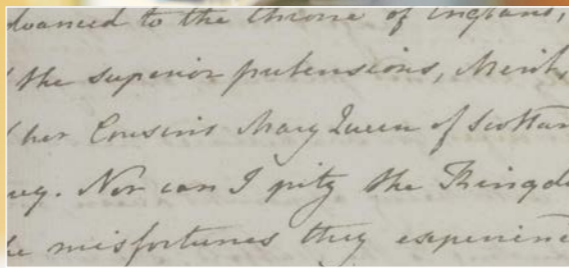 dvanced to the throne of England,
the superior pretensions, Merit,
her Cousin Mary Queen of Scotlan
ey. Nor can I pity the Kingdo
misfortunes they experienc